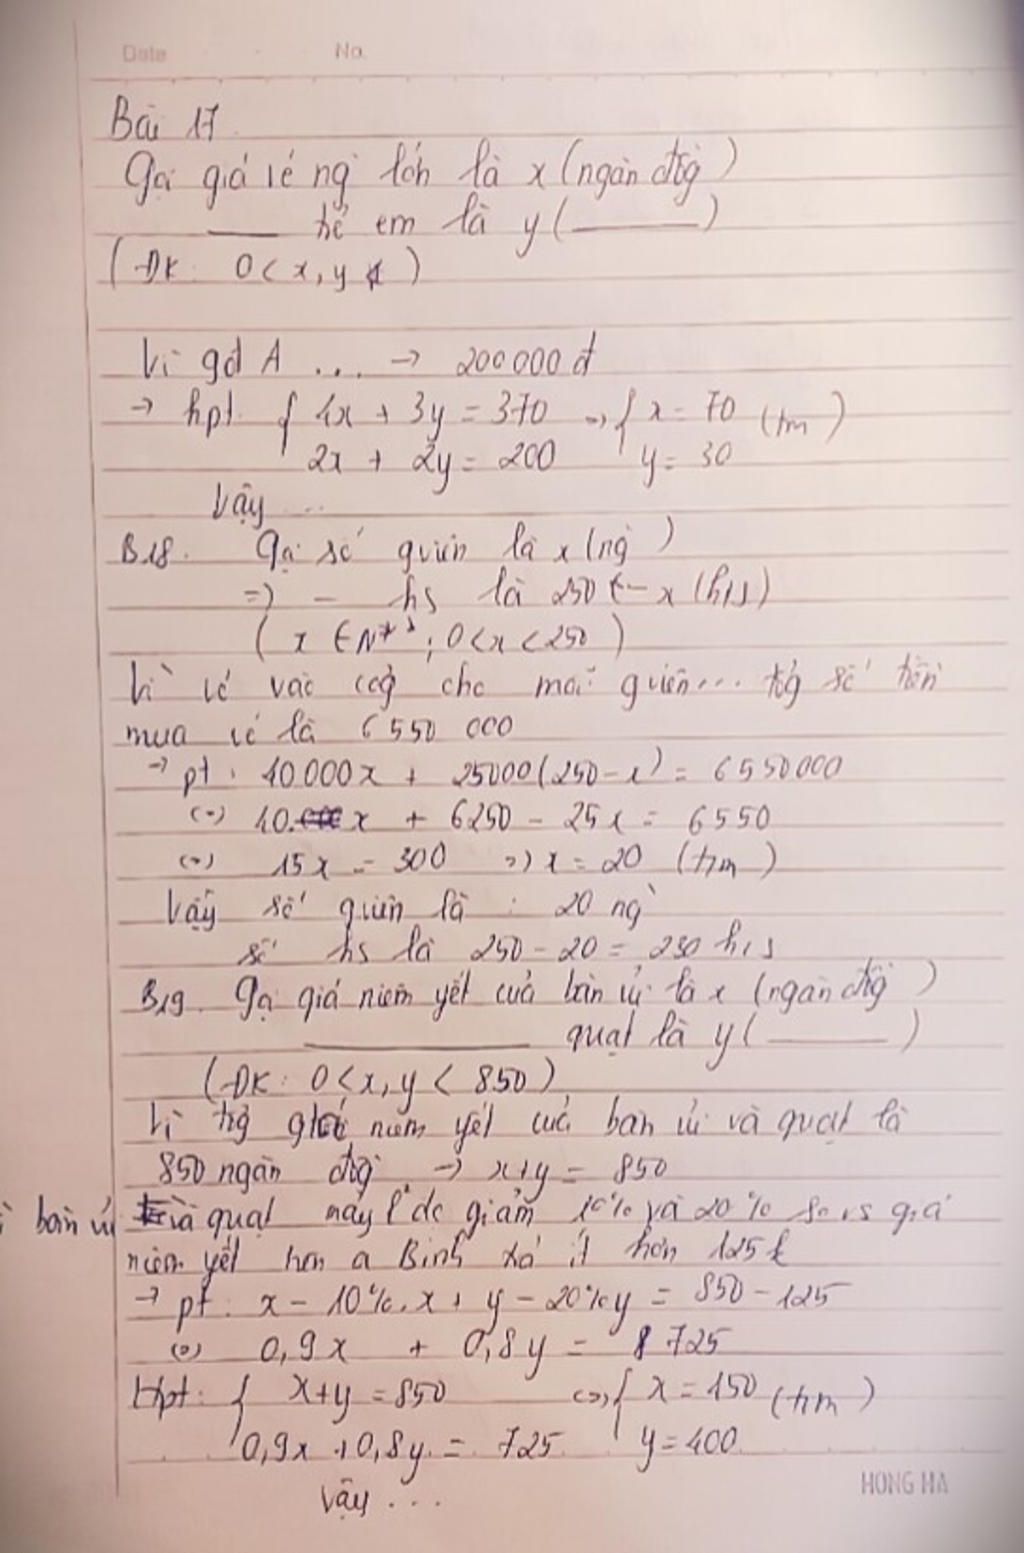 Date No.
Bài 17
Gọi giá vé ng lớn là x (ngàn đồg)
——— trẻ em là y (———)
(ĐK: 0 < x, y )
Vì gđ A ... → 200 000 đ
→ hpt { 4x + 3y = 370 ⇔ { x = 70 (tm)
2x + 2y = 200 y = 30
Vậy ...
B18. Gọi số gviên là x (ng)
=> - hs là 250 - x (h/s)
(x ∈ N*; 0 < x < 250)
Vì vé vào cổg cho mỗi gviên... tổg số tiền
mua vé là 6 550 000
→ pt: 40.000x + 25000(250-x) = 6550000
(=) 40.x + 6250 - 25x = 6550
(=) 15x = 300 => x = 20 (t/m)
Vậy số gviên là : 20 ng
số hs là 250 - 20 = 230 h/s
B19. Gọi giá niêm yết cuả bàn ủi là x (ngàn đồg)
——— quạt là y (———)
(ĐK: 0 < x, y < 850)
Vì tổg giá niêm yết cuả bàn ủi và quạt là
850 ngàn đồg → x+y = 850
Vì bàn ủi và quạt máy đc giảm 10% và 20% so vs giá
niêm yết nên a Bình trả ít hơn 125k
→ pt: x - 10%.x + y - 20%y = 850 - 125
(=) 0,9x + 0,8y = 725
Hpt: { x+y = 850 (=) { x = 450 (t/m)
0,9x + 0,8y = 725 y = 400
Vậy ...
HONG HA